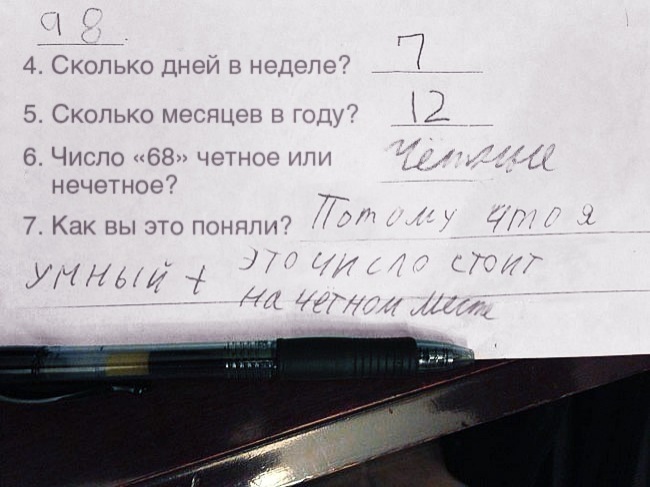 98
4. Сколько дней в неделе? 7
5. Сколько месяцев в году? 12
6. Число «68» четное или Чётное
нечетное?
7. Как вы это поняли? Потому что я
умный + это число стоит
на чётном месте